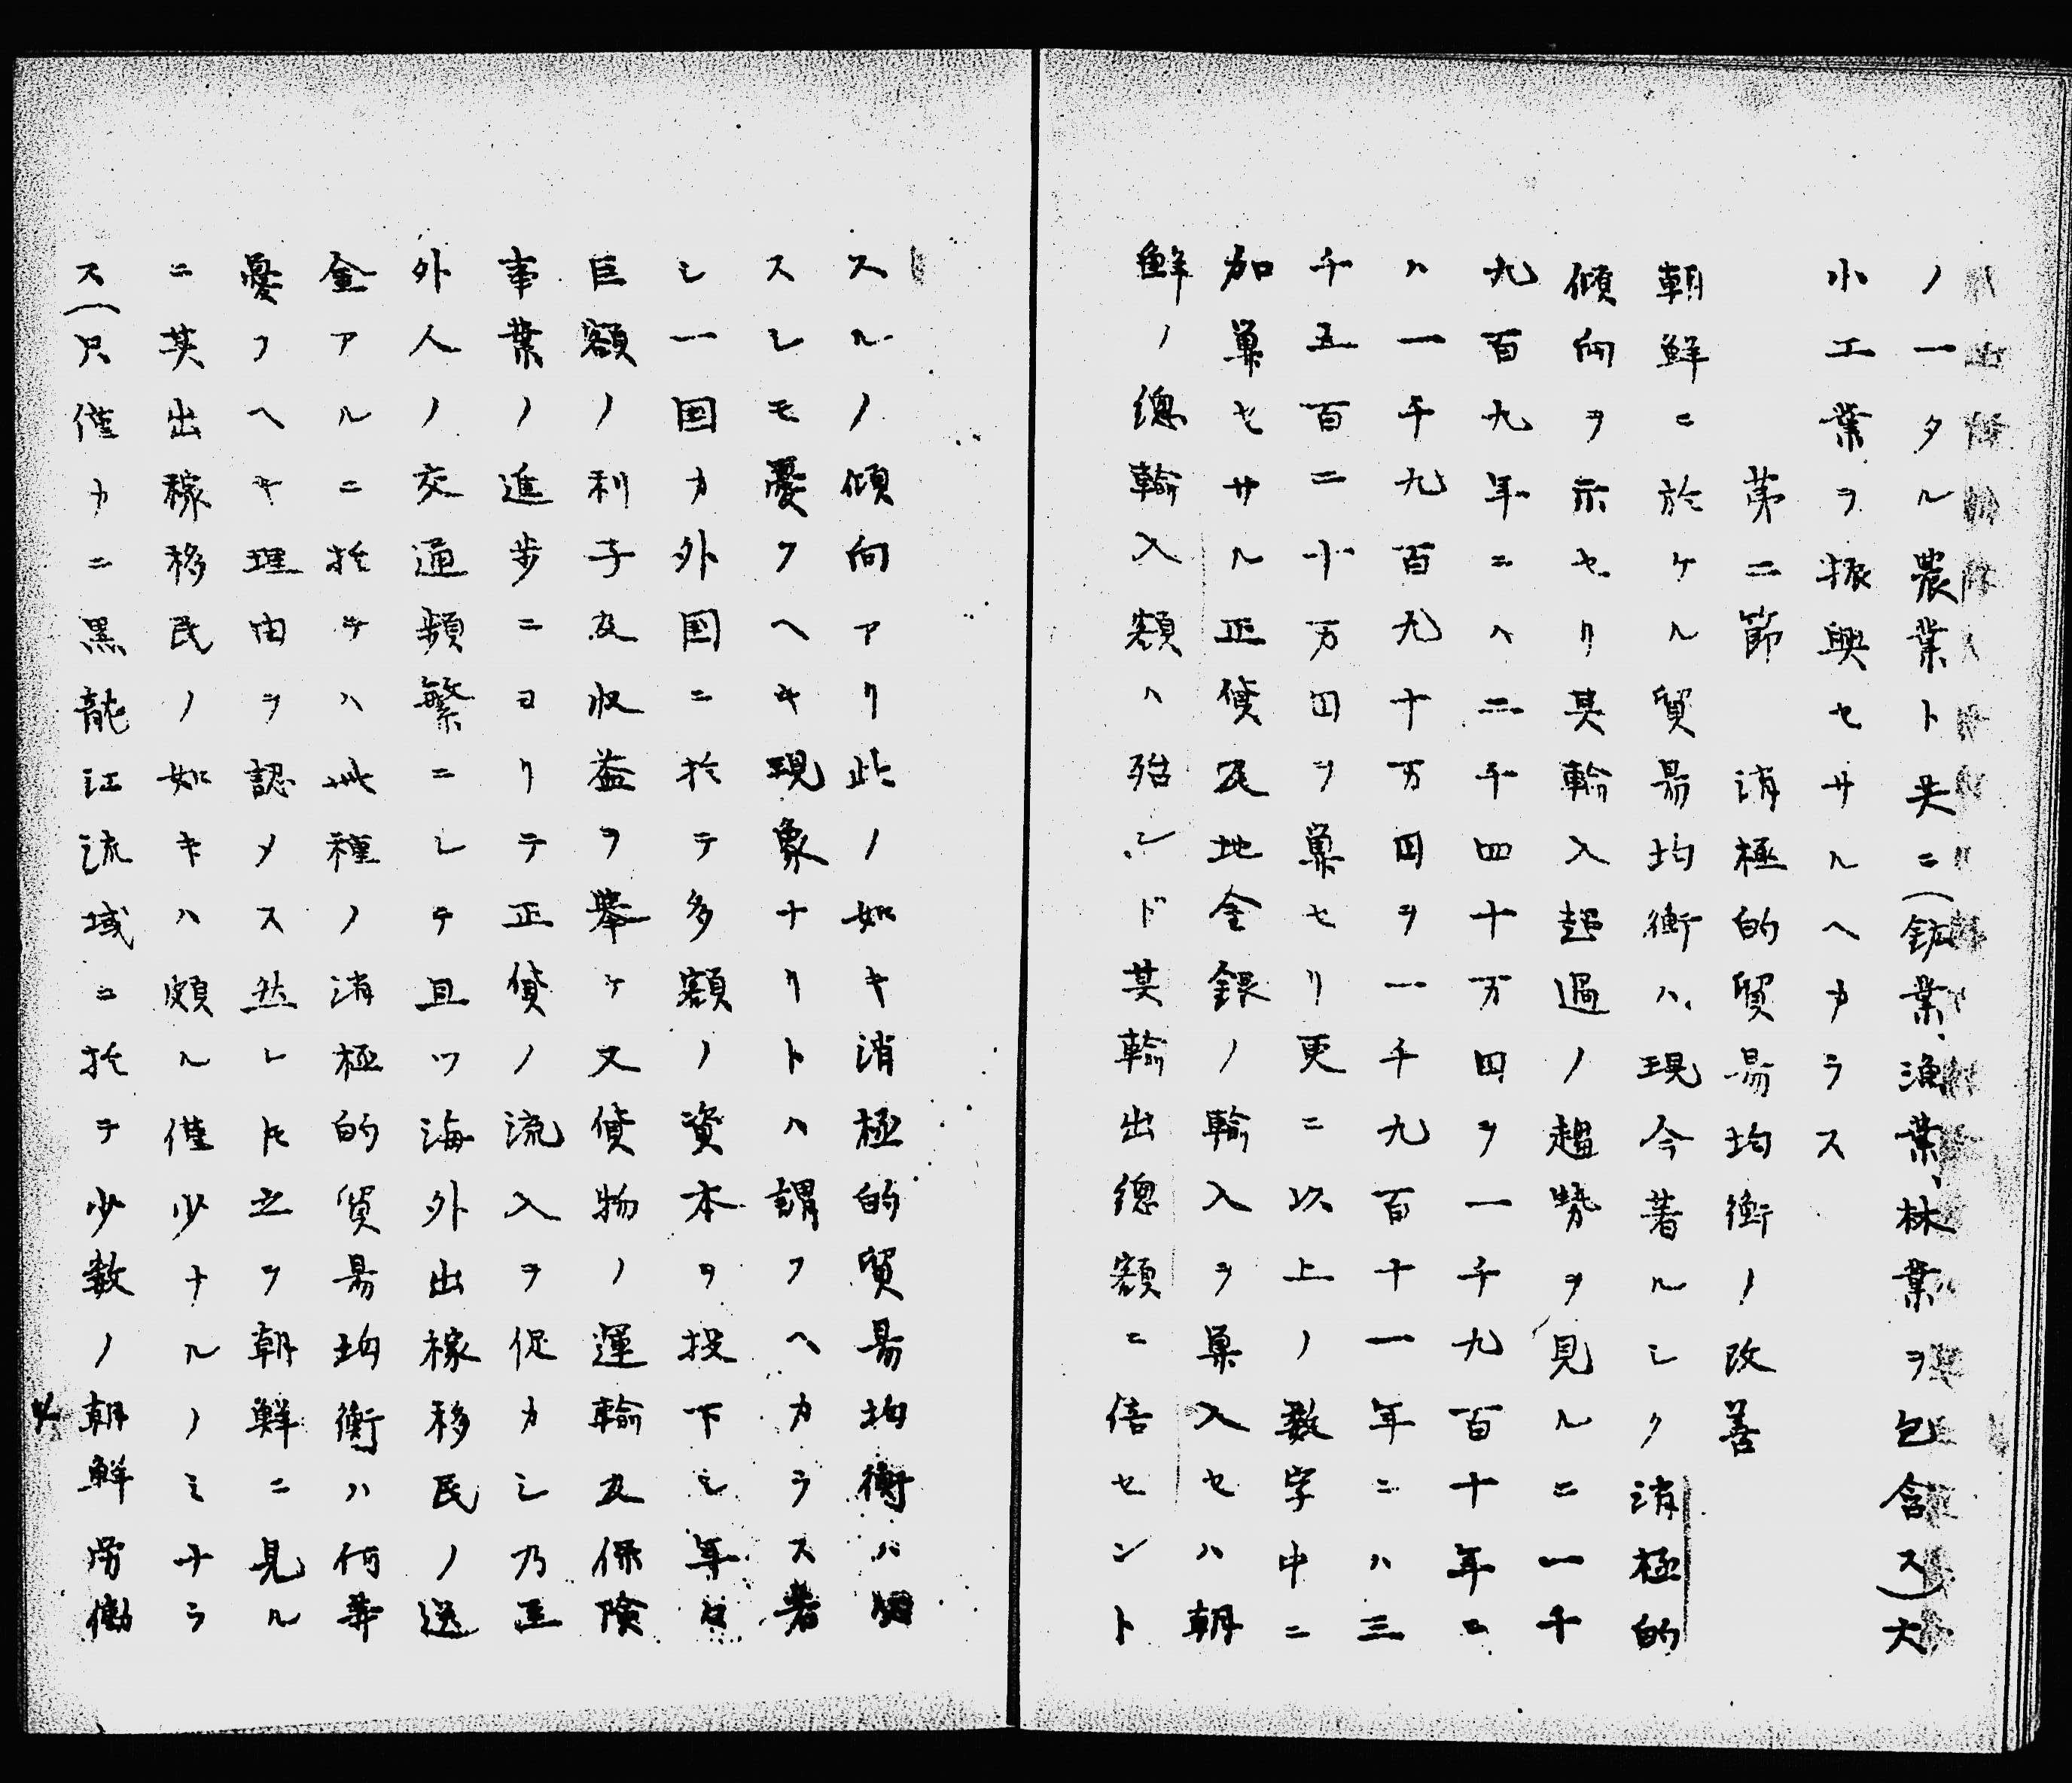 ノ一タル農業ト共ニ(鉱業、漁業、林業ヲ包含ス)大
小工業ヲ振興セサルヘカラス
第二節　消極的貿易均衡ノ改善
朝鮮ニ於ケル貿易均衡ハ、現今著ルシク消極的
傾向ヲ示セリ其輸入超過ノ趨勢ヲ見ルニ一千
九百九年ニハ二千四十万四ヲ一千九百十年ニ
ハ一千九百九十万四ヲ一千九百十一年ニハ三
千五百二十万四ヲ算セリ更ニ以上ノ数字中ニ
加算セサル正貨及地金銀ノ輸入ヲ算入セハ朝
鮮ノ總輸入額ハ殆ンド其輸出總額ニ倍セント
スルノ傾向アリ此ノ如キ消極的貿易均衡ハ
スシモ憂フヘキ現象ナリト謂フヘカラス若
シ一国カ外国ニ於テ多額ノ資本ヲ投下シ年々
巨額ノ利子及収益ヲ挙ケ又貨物ノ運輸及保険
事業ノ進歩ニヨリテ正貨ノ流入ヲ促カシ乃至
外人ノ交通頻繁ニシテ且ツ海外出稼移民ノ送
金アルニ於テハ此種ノ消極的貿易均衡ハ何等
憂フヘキ理由ヲ認メス然レトモ之ヲ朝鮮ニ見ル
ニ其出稼移民ノ如キハ頗ル僅少ナルノミナラ
ス(只僅カニ黒龍江流域ニ於テ少数ノ朝鮮労働